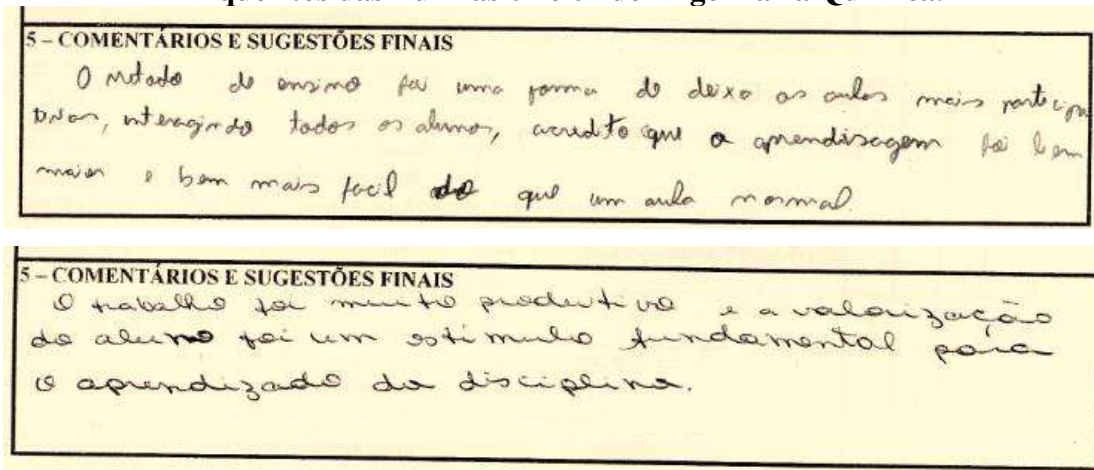 5 – COMENTÁRIOS E SUGESTÕES FINAIS
O metodo de ensino foi uma forma de deixa as aulas mais participa
tivas, interagindo todos os alunos, acredito que a aprendisagem foi bem
maior e bem mais facil do que um aula normal.
5 – COMENTÁRIOS E SUGESTÕES FINAIS
O trabalho foi muito produtivo e a valorização
do aluno foi um estimulo fundamental para
o aprendizado da disciplina.